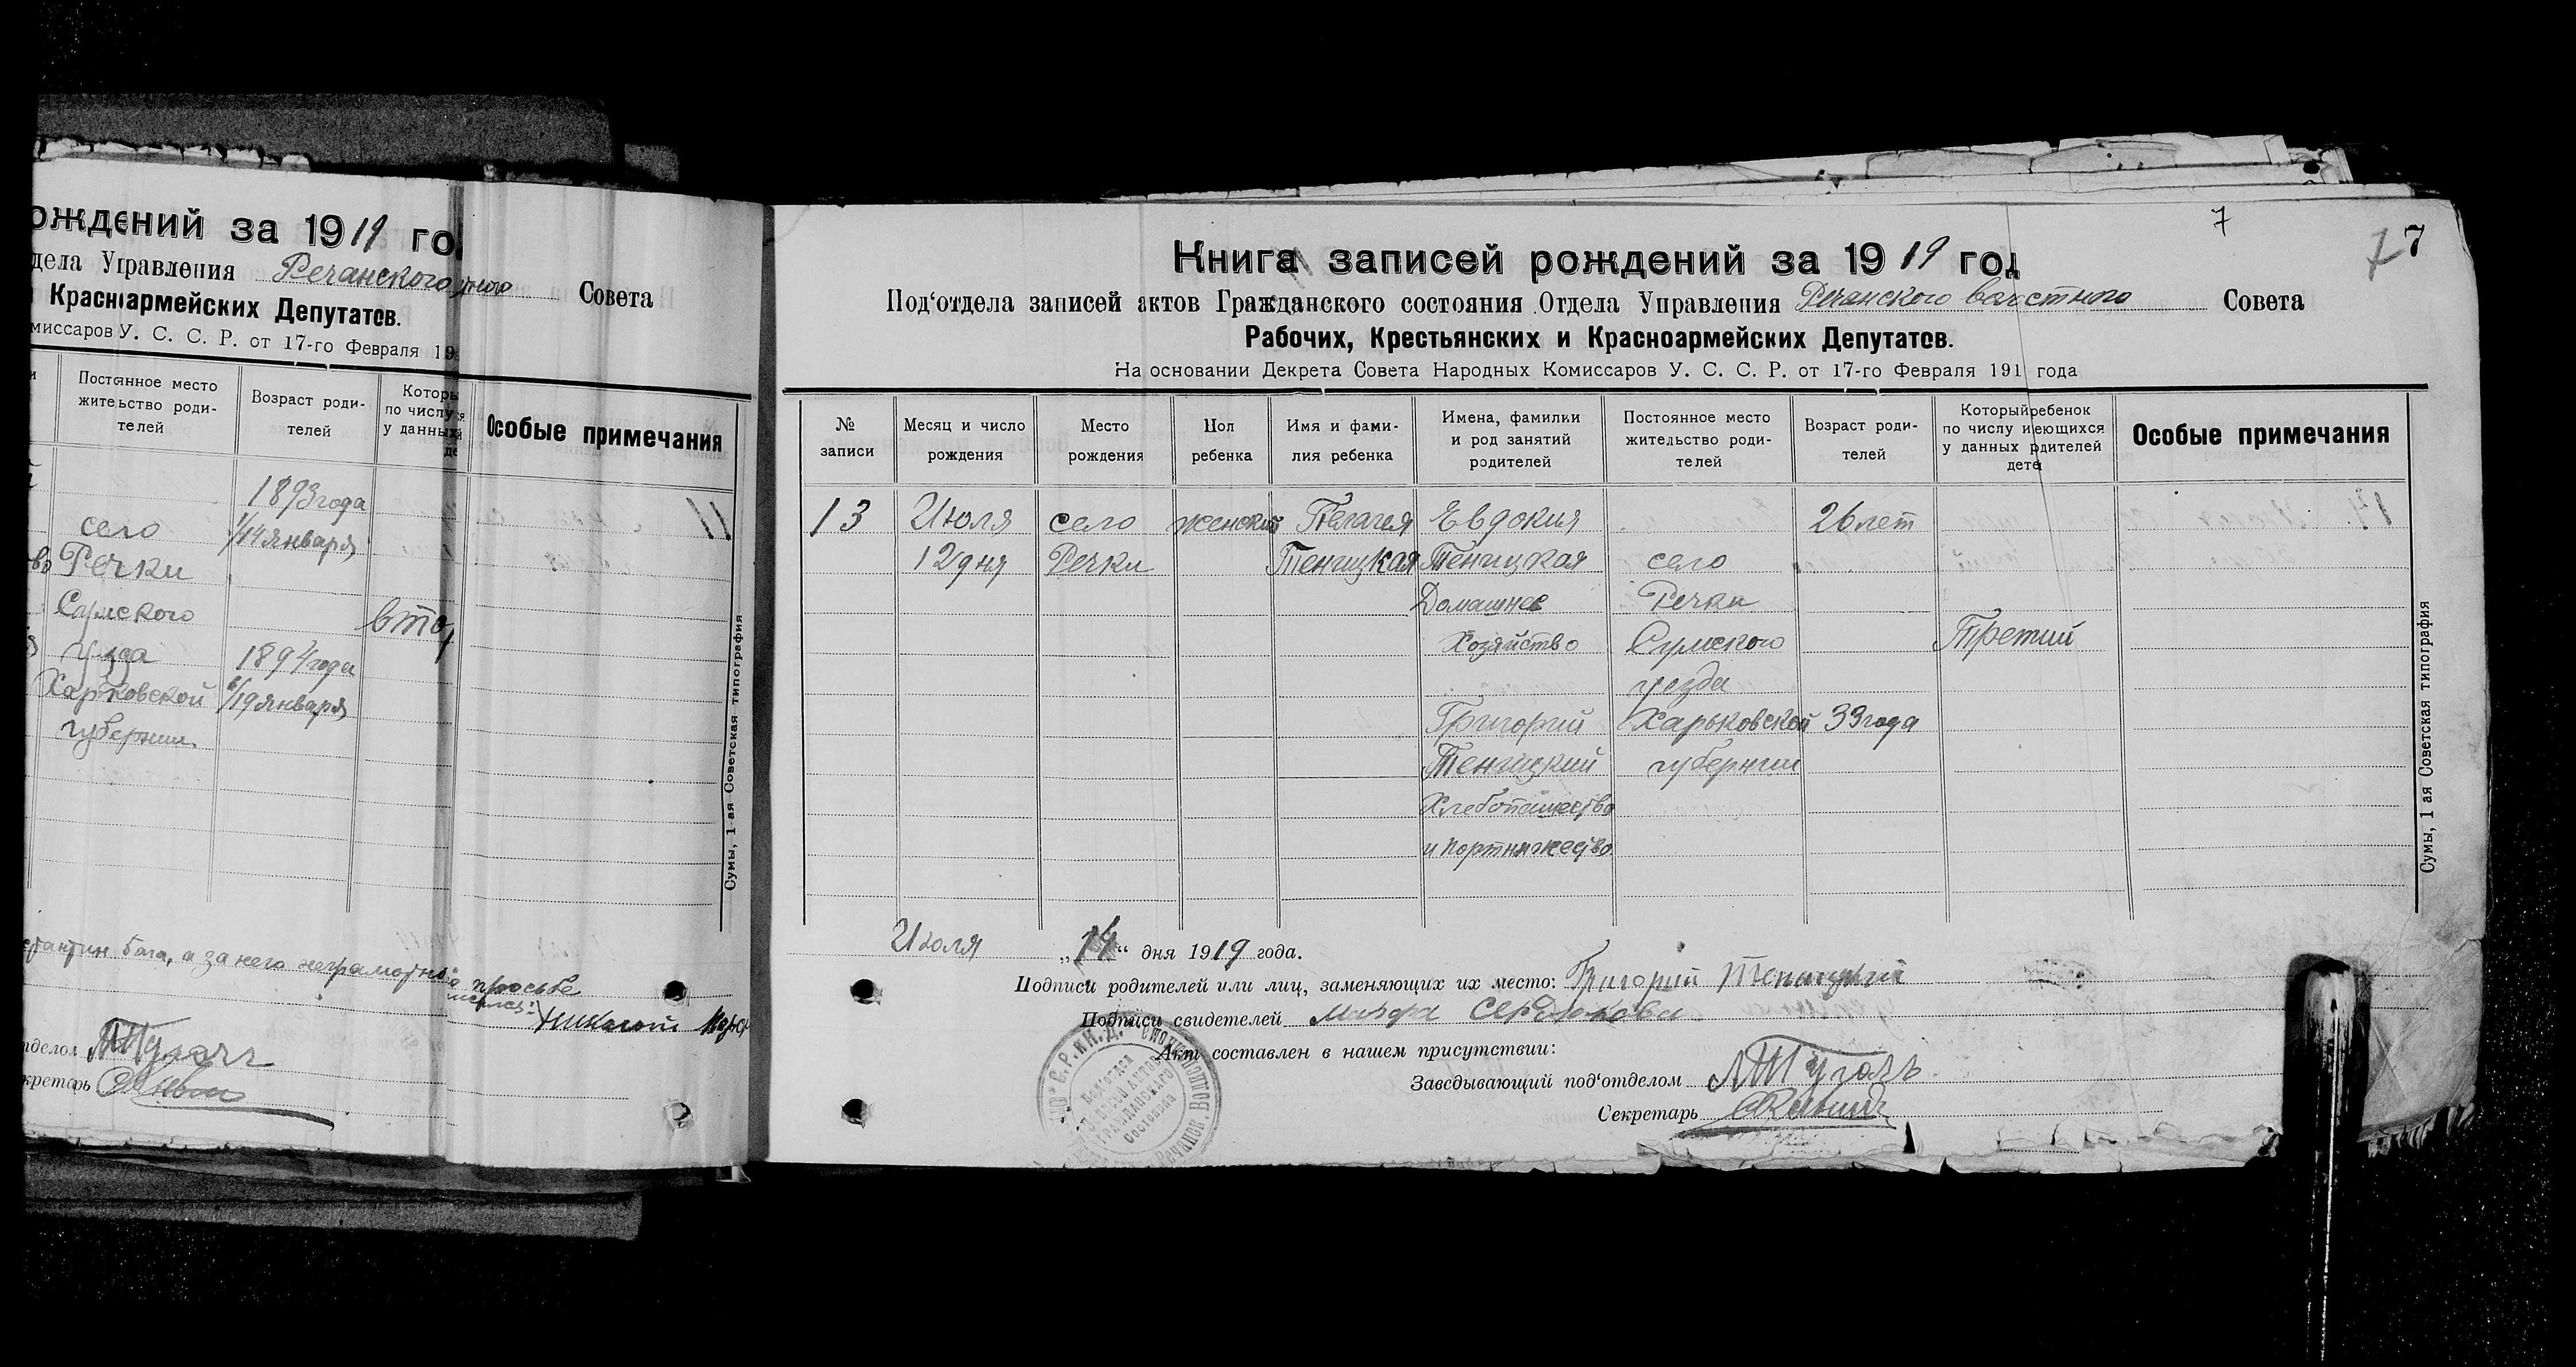 ождений за 1919 го
дела Управления Речанского Совета
Красноармейских Депутатов.
миссаров У. С. С. Р. от 17-го Февраля 19
Постоянное место жительство роди-телей
Возраст роди-телей
Которы по числу у данных
Особые примечания
1893 года
село 1/14 января
во Речки
Сумского вто
уезда 1894 года
Харьковской 6/19 января
губернии.
11
Сумы, 1-ая Советская типография
а за него неграмотно
просьбе
Николай
отделом
кретарь
7
7 7
Книга записей рождений за 1919 год
Под‘отдела записей актов Гражданского состояния Отдела Управления Речанского волостного Совета
Рабочих, Крестьянских и Красноармейских Депутатов.
На основании Декрета Совета Народных Комиссаров У. С. С. Р. от 17-го Февраля 191 года
№ записи
Месяц и число рождения
Место рождения
Пол ребенка
Имя и фами-лия ребенка
Имена, фамилии и род занятий родителей
Постоянное место жительство роди-телей
Возраст роди-телей
Который ребенок по числу имеющихся у данных родителей детей
Особые примечания
13 Июля село женский Пелагея Евдокия 26 лет
12 дня Речки Теницкая Теницкая село
Домашнее Речки
Хозяйство Сумского Третий
уезда
Григорий Харьковской 33 года
Теницкий губернии
Хлебопашество
и портняжество
Сумы, 1 ая Советская типография
Июля „14“ дня 1919 года.
Подписи родителей или лиц, заменяющих их место: Григорий Теницкий
Подписи свидетелей Марфа Сердюкова
Акт составлен в нашем присутствии:
Заведывающий под‘отделом
Секретарь